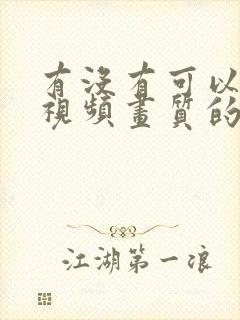 有没有可以
視頻畫質的
江湖第一浪